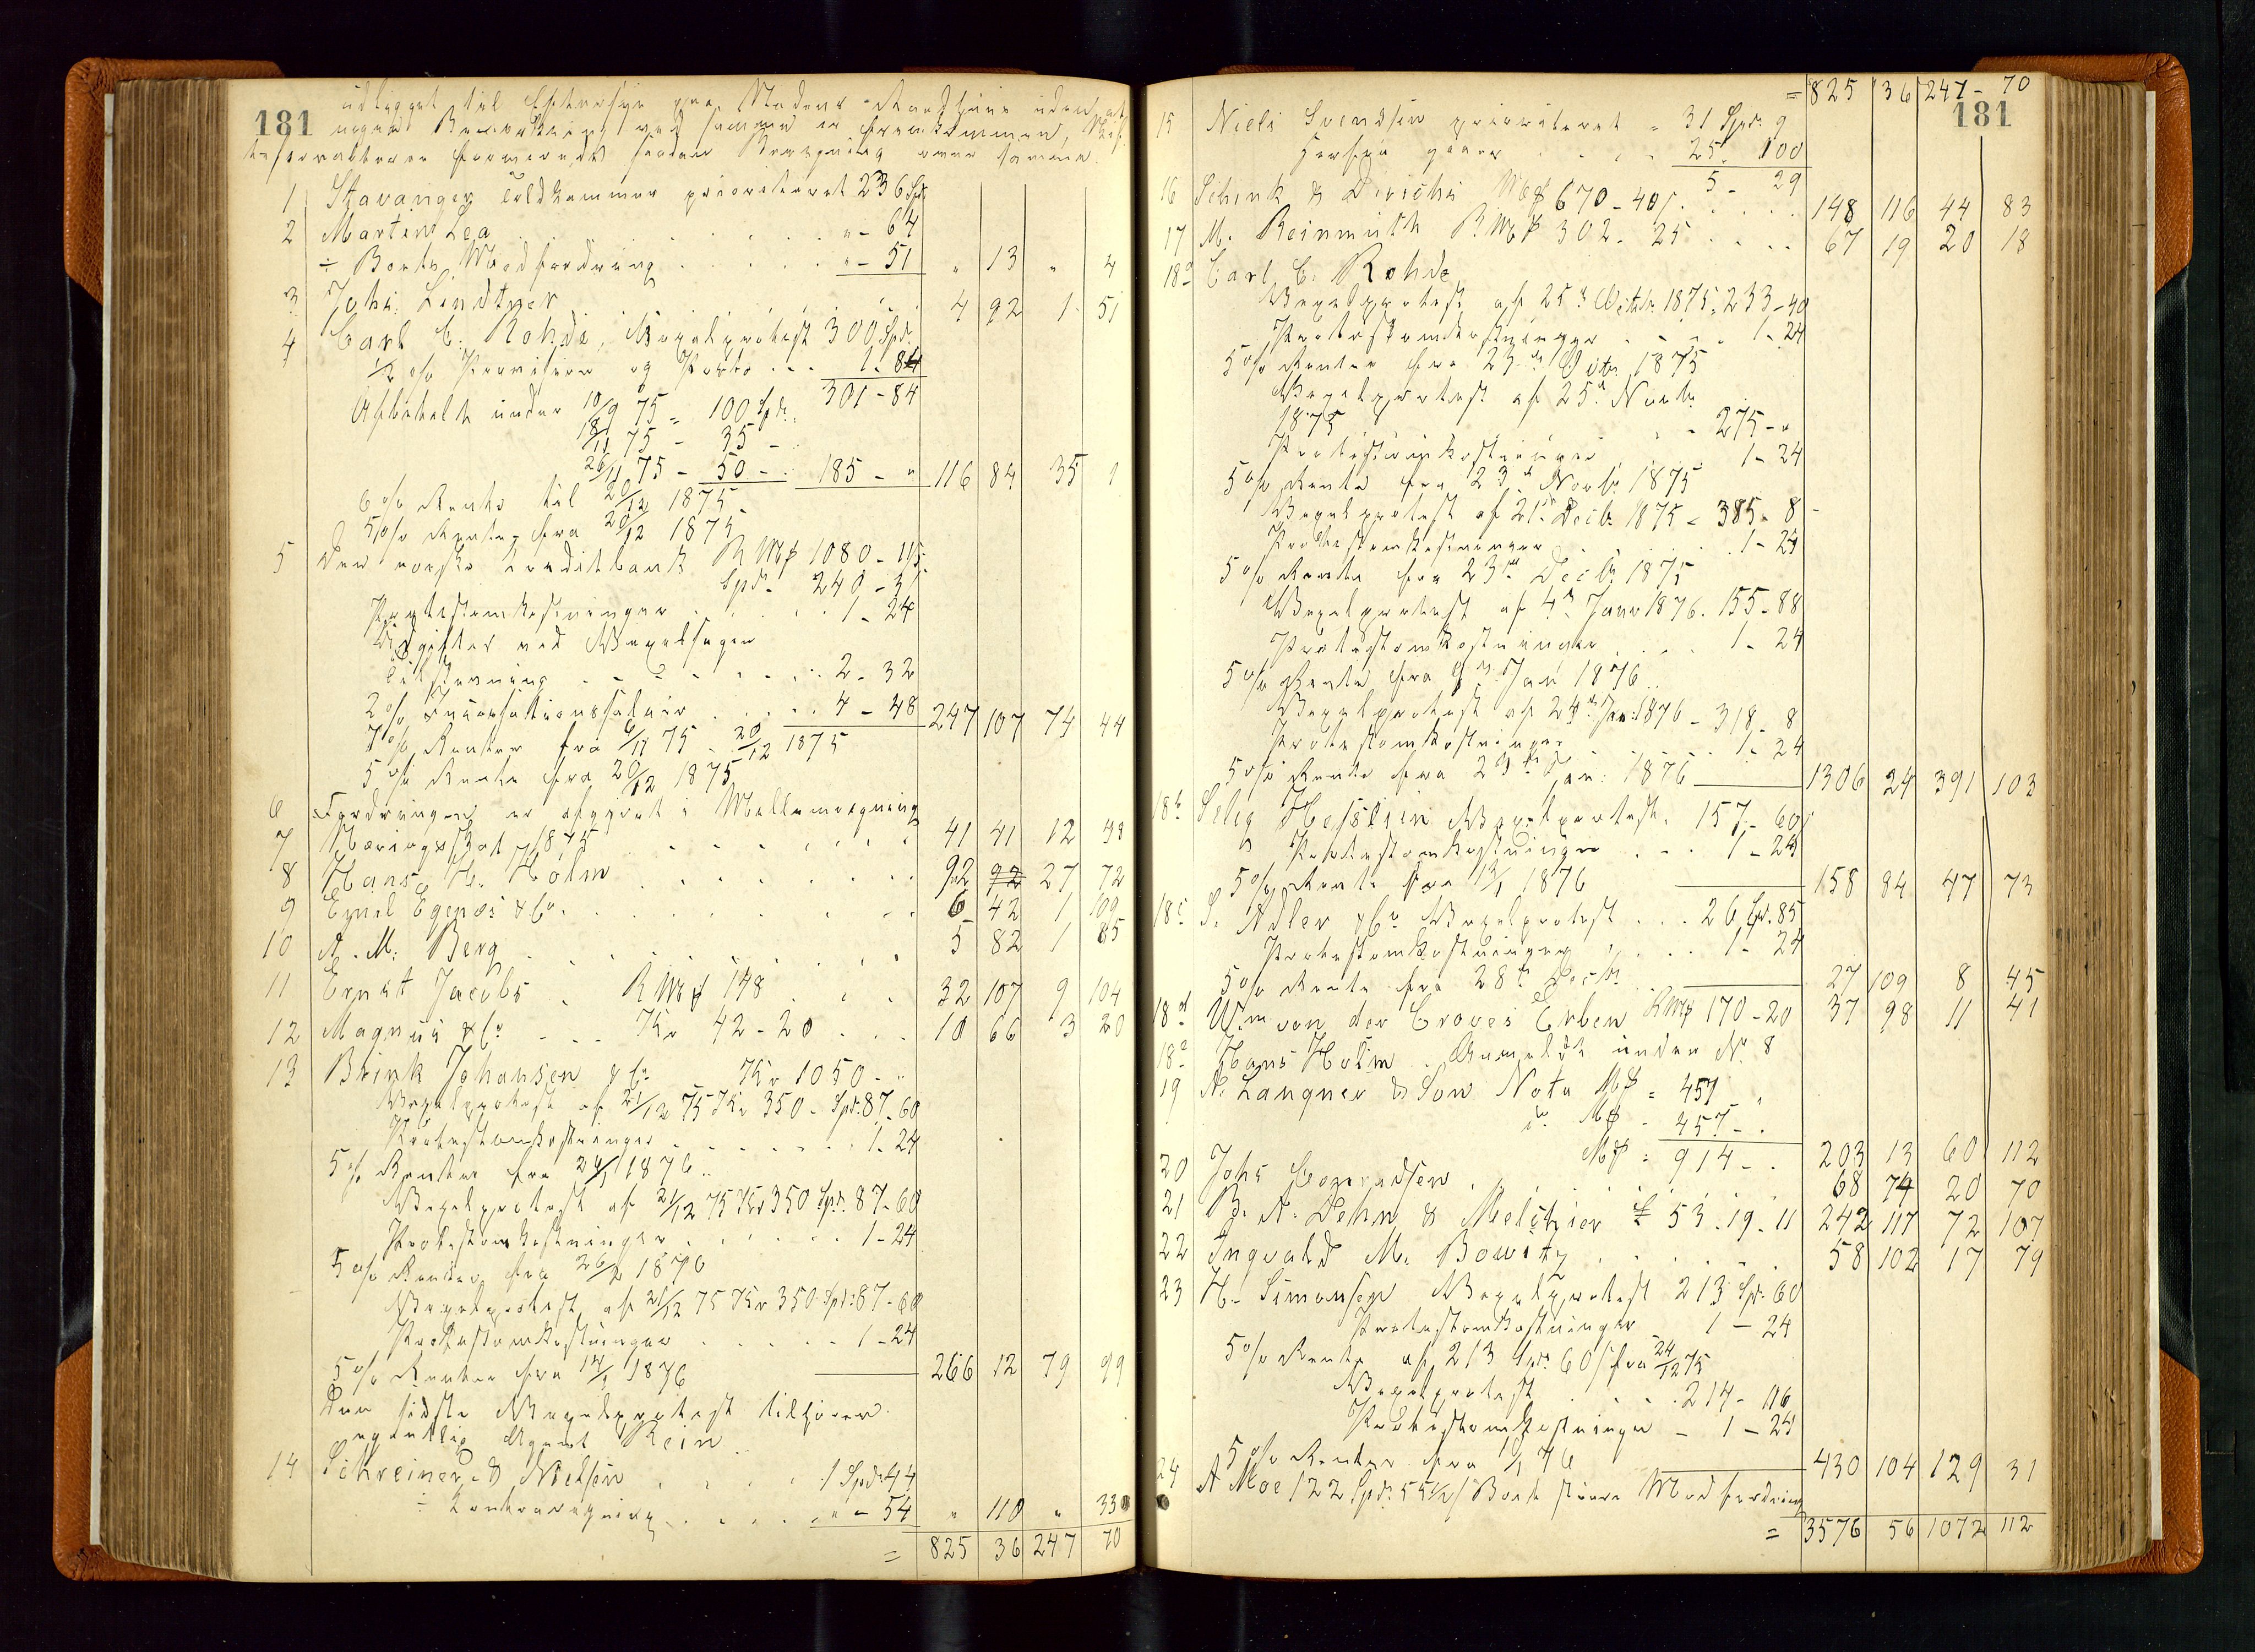 181
udlagget til Eftersyn paa Stadens Raadhuus uden at
nogen Bemærkning ved samme er fremkommen,
saadan Beregning over samme.
1 Stavanger Toldkammer prioriteret 236 Spd.
2 Martin Lea " - 64
÷ Boets Modfordring " - 51 " 13 " 4
3 Johs. Lindtner 4 92 1 51
4 Carl C. Rohde, Vexelprotest 300 Spd.
1/2 % Provision og Porto 1 - 84
301 - 84
Afbetalt under 10/9 75 = 100 Spd.
18/11 75 - 35 -
26/11 75 - 50 - 185 - " 116 84 35 1
6 % Rente til 20/12 1875
5 % Rente fra 20/12 1875
5 Den norske Creditbank RM₰ 1080 - 115
Spd. 240 - 31
Protestomkostninger 1 - 24
Udgifter ved Vexelsagen
Tilstævning 2 - 32
2 % Incassationssalair 4 - 48 247 107 74 44
7 % Renter fra 6/11 75 - 20/12 1875
5 % Rente fra 20/12 1875
6 Fordringen er afgjort i Mellemregning
7 Næringsskat 1875 41 41 12 48
8 Hans H. Holm 92 92 27 72
9 Egnel Egenæs & Co. 6 42 1 109
10 A. M. Berg 5 82 1 85
11 Ernst Jacobs RM₰ 148 32 107 9 104
12 Magnus & Co Kr 42 - 20 10 66 3 20
13 Brink Johansen & Co Kr 1050 - "
Vexelprotest af 21/12 75 Kr 350 - Spd. 87 - 60
Protestomkostninger 1 - 24
5 % Renter fra 24/1 1876
Vexelprotest af 21/12 75 Kr 350 Spd. 87 - 60
Protestomkostninger 1 - 24
5 % Renter fra 26/2 1876
Vexelprotest af 21/12 75 Kr 350 Spd. 87 - 60
Protestomkostninger 1 - 24
5 % Renter fra 14/1 1876 266 12 79 99
Den sidste Vexelprotest tilhører
egentlig Agent Rein
14 Schreiner & Nielsen 1 Spd 44
÷ Contraregning " - 54 " 110 " 33
= 825 36 247 70
= 825 36 247 - 70
181
15 Niels Svendsen prioriteret = 31 Spd. 9
Herfra gaaer 25 100
5 - 29
16 Schenk & Dirichs M₰ 670 - 40 148 116 44 83
17 M. Reinmuth RM₰ 302 - 25 67 19 20 18
18a Carl C. Rohde
Vexelprotest af 25de Octbr. 1875 = 233 - 40
Protestomkostninger 1 - 24
5 % Renter fra 23de Octbr. 1875
Vexelprotest af 25de Novbr.
1875 275 - "
Protestomkostninger 1 - 24
5 % Rente fra 23de Novbr. 1875
Vexelprotest af 21de Decbr. 1875 = 385 - 8
Protestomkostninger 1 - 24
5 % Rente fra 23de Decbr. 1875
Vexelprotest af 4de Janr 1876. 155 - 88
Protestomkostninger 1 - 24
5 % Rente fra Jan 1876
Vexelprotest af 24de Jan: 1876 - 318 - 8
Protestomkostninger 1 - 24
5 % Rente fra Jan: 1876 1306 24 391 103
18b Selig Hesslein Vexelprotest 157 - 60
Protestomkostninger 1 - 24
5 % Rente fra 13/1 1876 158 84 47 73
18c S. Adler & Co Vexelprotest 26 Spd. 85
Protestomkostninger 1 - 24
5 % Rente fra 28de Decbr. 27 109 8 45
18d Wm von der Croves Erben RM₰ 170 - 20 37 98 11 41
18e Hans Holm Anmeldt under No. 8
19 A. Langner & Son Nota M₰ = 457 "
do. M₰ - 457 - .
M₰ = 914 - . 203 13 60 112
20 Johs Conradsen 68 74 20 70
21 B. A. Dehn & Melchior £ 53 - 19 - 11 242 117 72 107
22 Ingvald M. Bowitz 58 102 17 79
23 H. Simonsen Vexelprotest 213 Spd. 60
Protestomkostninger 1 - 24
5 % Rente af 213 Spd. 60 fra 24/12 75
Vexelprotest 214 - 116
Protestomkostninger - 1 - 24
5 % Renter fra 76 430 104 129 31
24 A Moe 122 Spd. 55 1/2 Boet større Modfordring
= 3576 56 1072 112